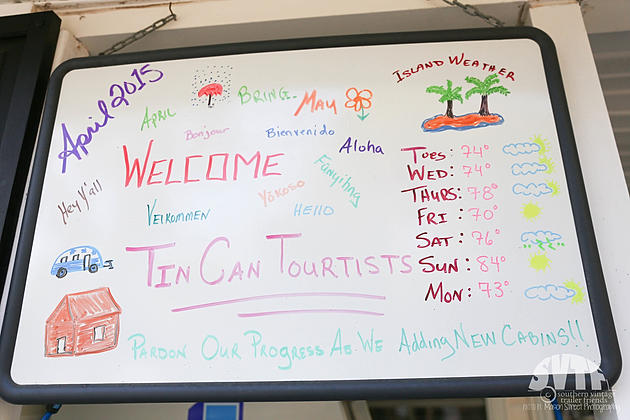 April 2015
April
Bring
May
Bonjour
Bienvenido
Aloha
Welcome
Hey Y'all
Yōkoso
Fānyíng
Velkommen
Hello
Tin Can Tourtists
Pardon Our Progress As We Adding New Cabins!!
Island Weather
Tues: 74°
Wed: 74°
Thurs: 78°
Fri: 70°
Sat: 76°
Sun: 84°
Mon: 73°
SVTF
southern vintage
trailer friends
Mason Street Photography